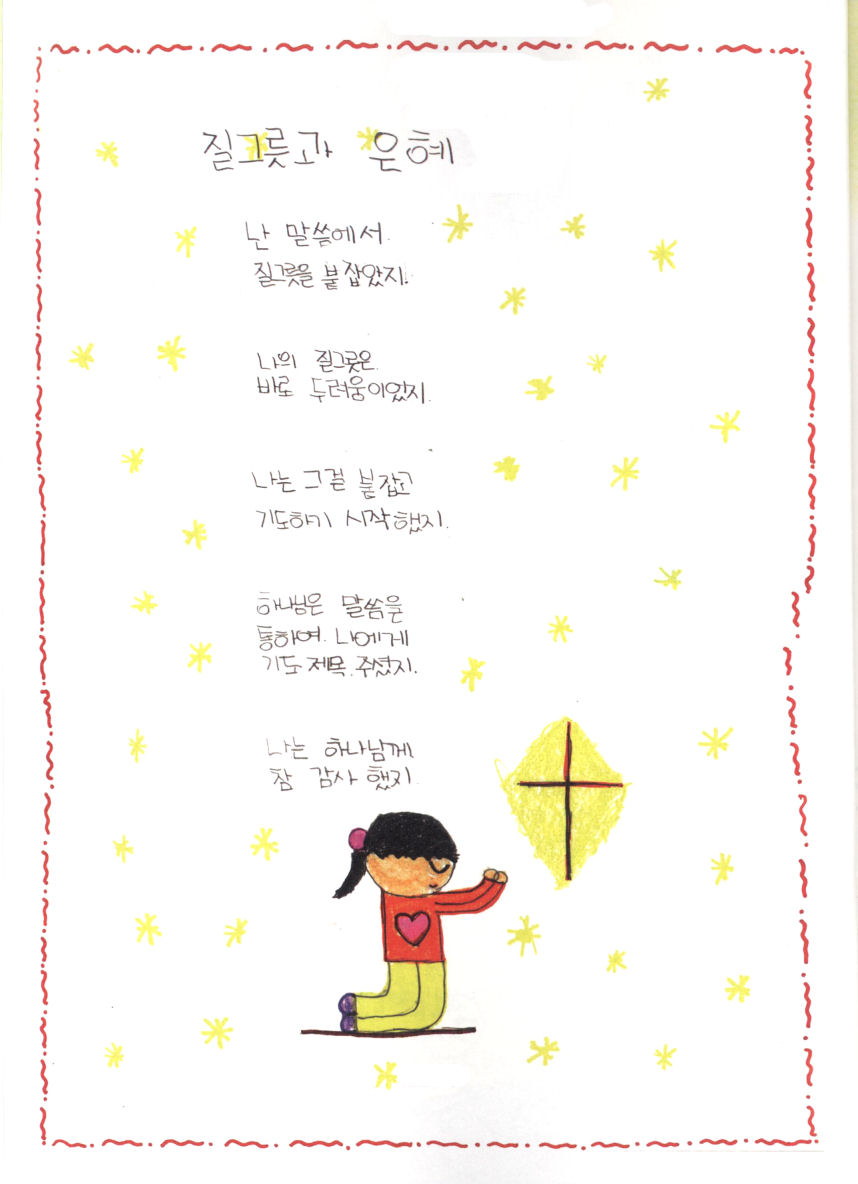 질그릇과 은혜
난 말씀에서
질그릇을 붙잡았지.
나의 질그릇은
바로 두려움이었지.
나는 그걸 붙잡고
기도하기 시작했지.
하나님은 말씀을
통하여 나에게
기도 제목 주셨지.
나는 하나님께
참 감사 했지.